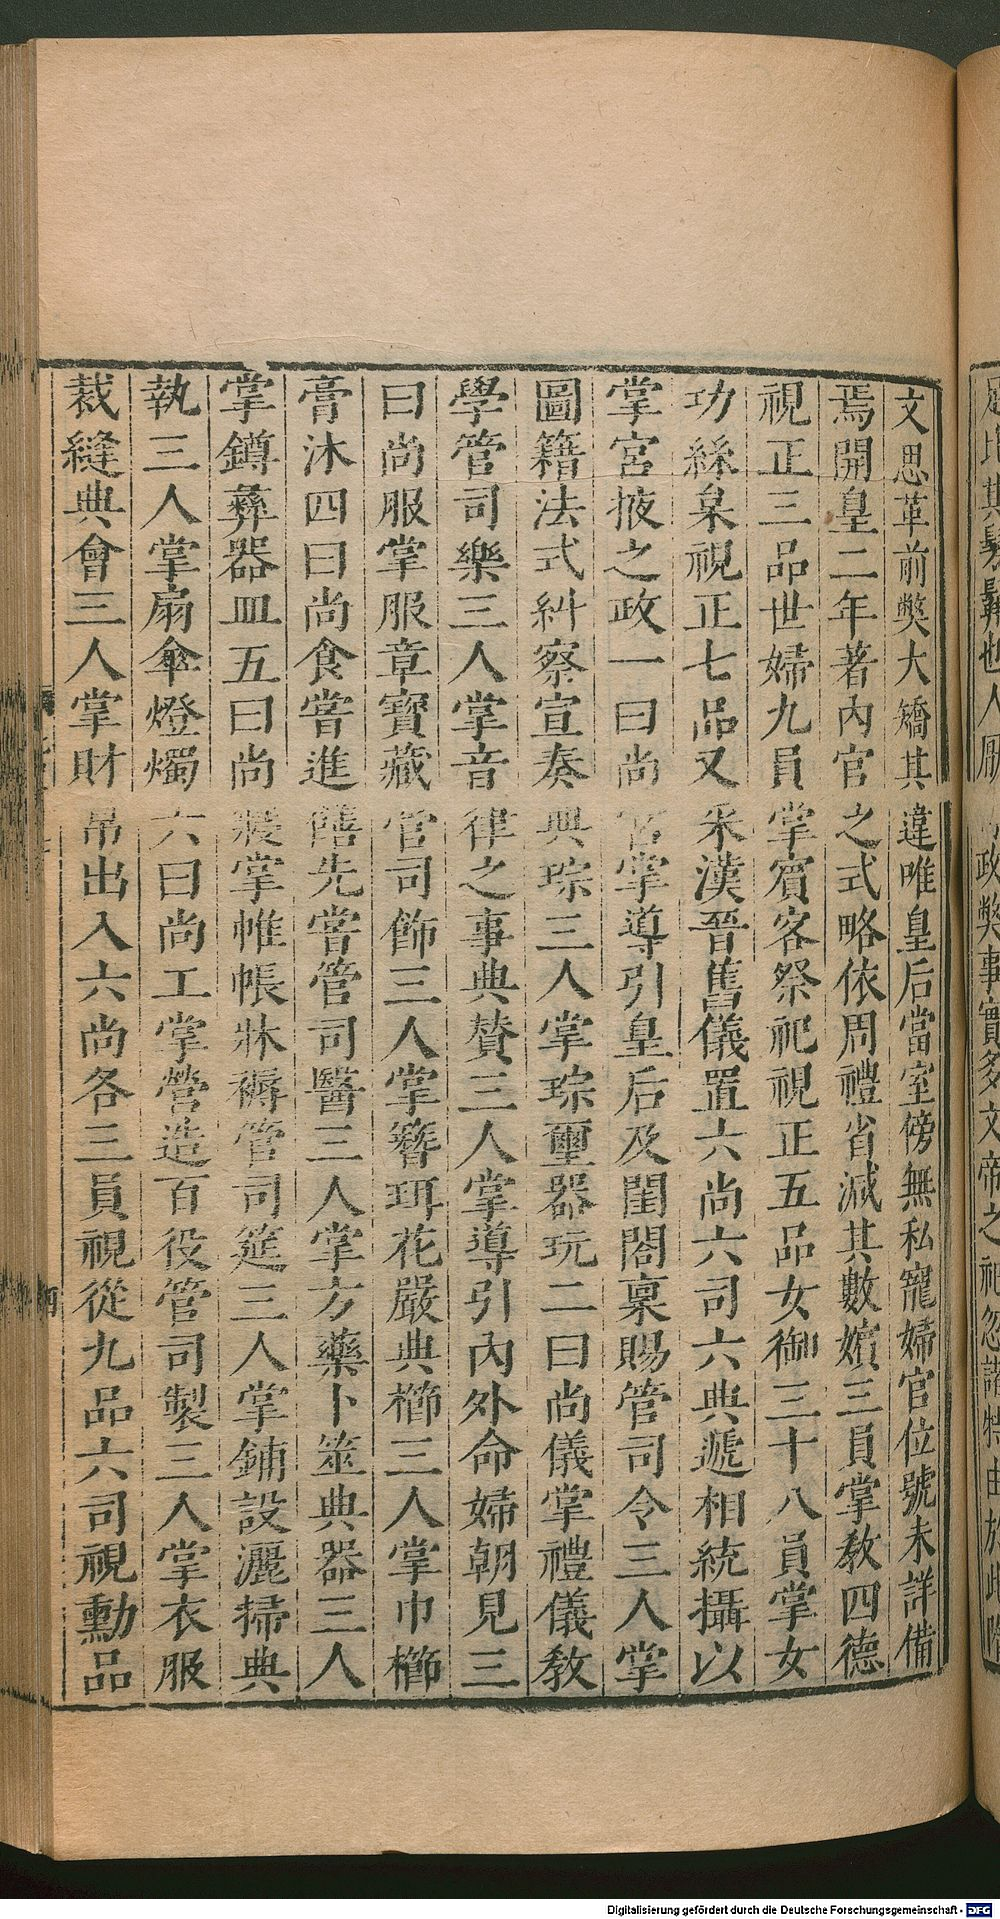 文思革前弊大矯其違唯皇后當室傍無私寵婦官位號未詳備
焉開皇二年著內官之式略依周禮省減其數嬪三員掌敎四德
視正三品世婦九員掌賓客祭祀視正五品女御三十八員掌女
功絲枲視正七品又采漢晉舊儀置六尚六司六典遞相統攝以
掌宮掖之政一曰尚宮掌導引皇后及閨閤稟賜管司令三人掌
圖籍法式糾察宣奏典琮三人掌琮璽器玩二曰尚儀掌禮儀敎
學管司樂三人掌音律之事典贊三人掌導引內外命婦朝見三
曰尚服掌服章寶藏管司飾三人掌簪珥花嚴典櫛三人掌巾櫛
膏沐四曰尚食嘗進饍先嘗管司醫三人掌方藥卜筮典器三人
掌鐏彝器皿五曰尚寢掌帷帳牀褥管司筵三人掌鋪設灑掃典
執三人掌扇傘燈燭六曰尚工掌營造百役管司製三人掌衣服
裁縫典會三人掌財帛出入六尚各三員視從九品六司視勳品
Digitalisierung gefördert durch die Deutsche Forschungsgemeinschaft - DFG